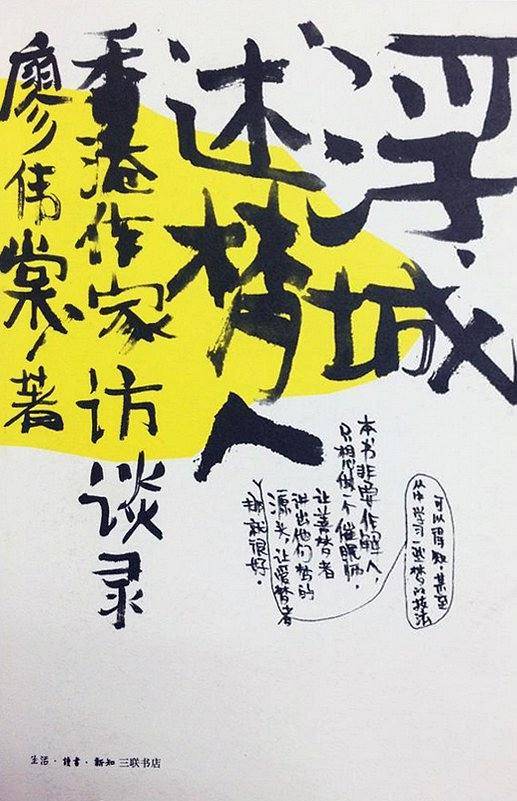 浮城
述梦人
香港作家访谈录
廖伟棠/著
本书非要作解人,
只想做一个催眠师,
让善梦者
讲出他们梦的
源头,让爱梦者
可以得知,甚至
从中学习造梦的技法
那就很好。
生活·讀書·新知 三联书店